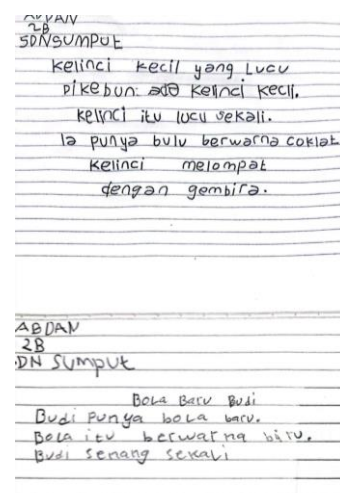 ABDAN
2B
SDNSUMPUT
Kelinci kecil yang Lucu
Dikebun. ada Kelinci Kecil.
Kelinci itu lucu sekali.
Ia punya bulu berwarna coklat
Kelinci melompat
dengan gembira.
ABDAN
2B
DN SUMPUt
Bola Baru Budi
Budi Punya bola baru.
Bola itu berwarna biru.
Budi Senang sekali